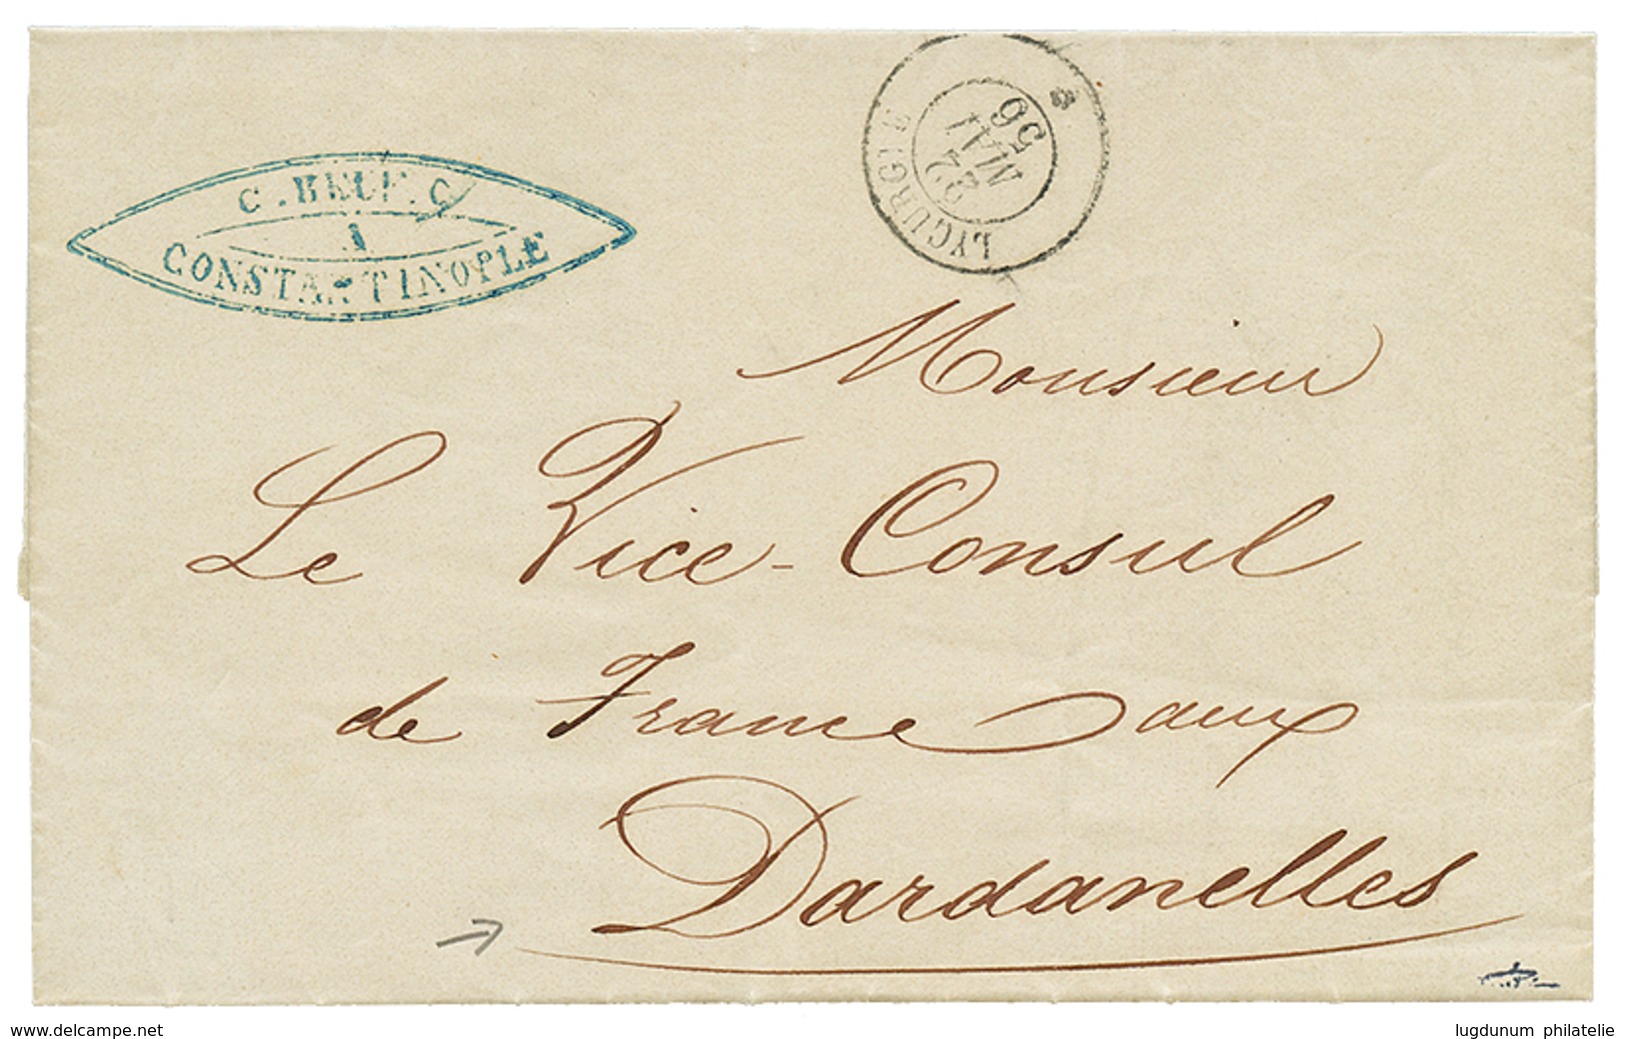 C. BEUF. C
A
CONSTANTINOPLE
LYCURGUE
22
MAI
56
Monsieur
Le Vice-Consul
de France aux
Dardanelles
www.delcampe.net
lugdunum philatelie